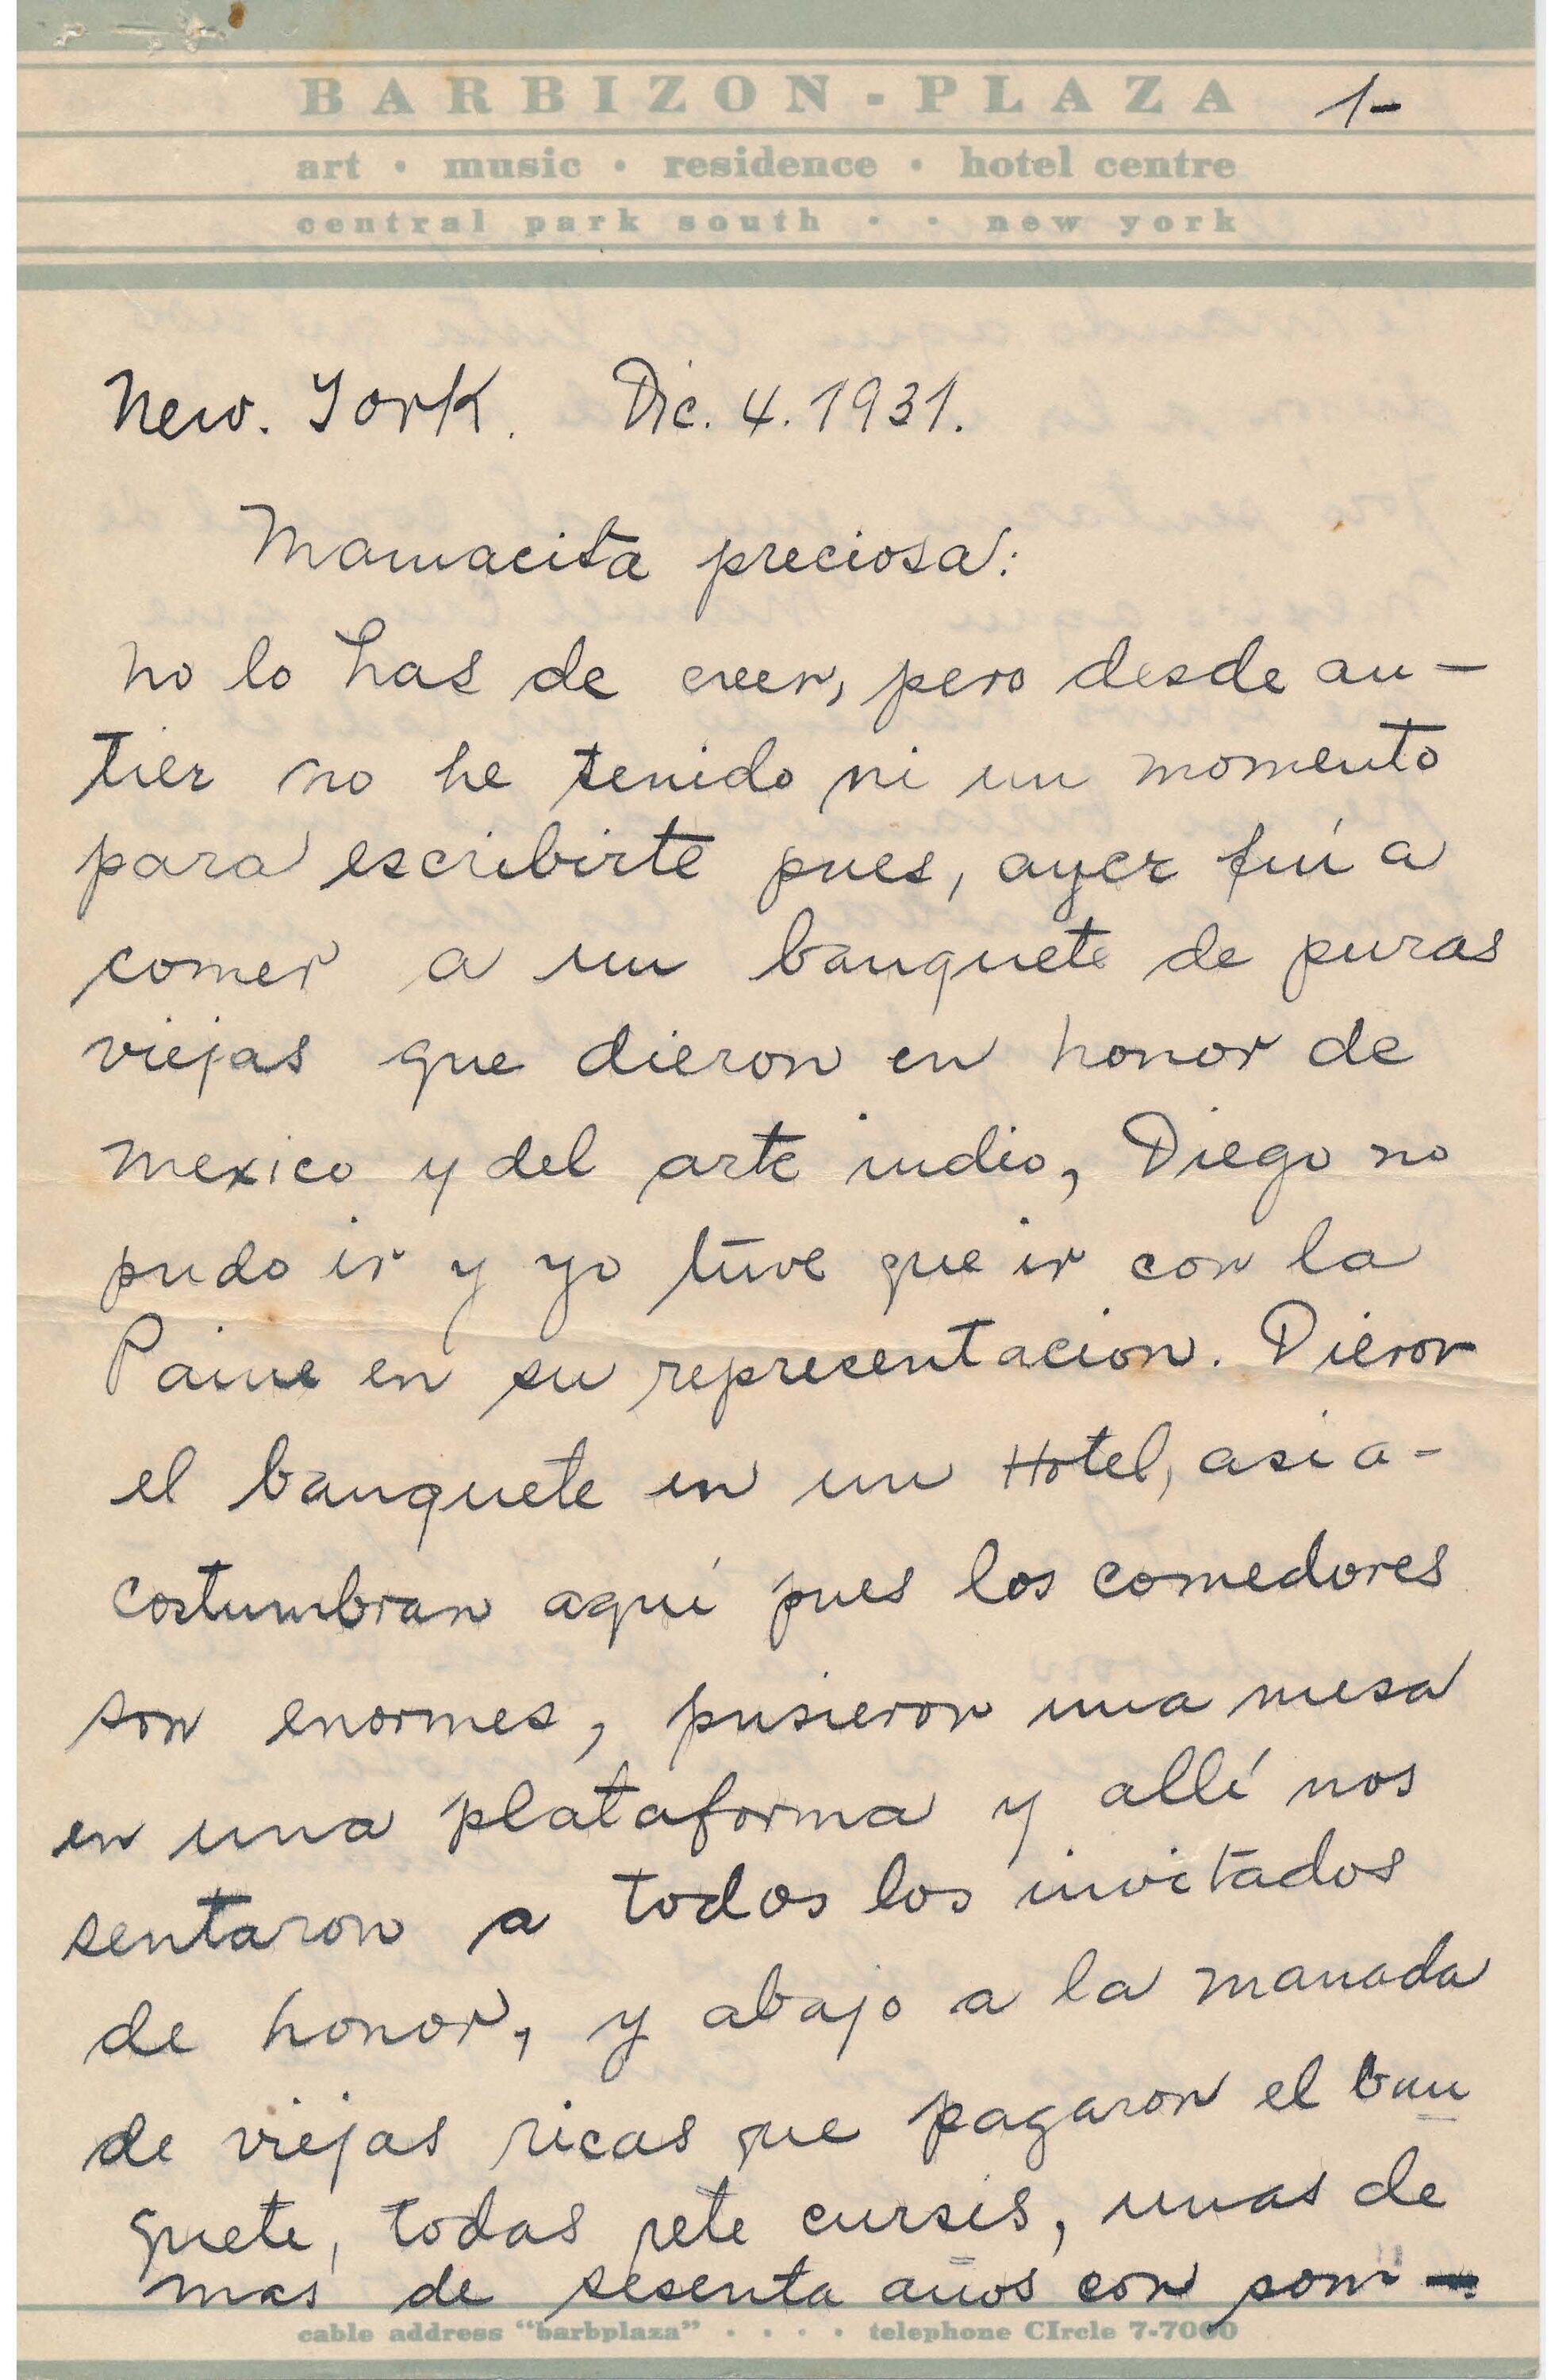 BARBIZON-PLAZA 1-
art • music • residence • hotel centre
central park south • • new york
New. York. Dic. 4. 1931.
Mamacita preciosa:
no lo has de creer, pero desde an-
tier no he tenido ni un momento
para escribirte pues, ayer fuí a
comer a un banquete de puras
viejas que dieron en honor de
Mexico y del arte indio, Diego no
pudo ir y yo tuve que ir con la
Paine en su representacion. Dieron
el banquete en un Hotel, asi a-
costumbran aquí pues los comedores
son enormes, pusieron una mesa
en una plataforma y allí nos
sentaron a todos los invitados
de honor, y abajo a la manada
de viejas ricas que pagaron el ban
quete, todas rete cursis, unas de
mas de sesenta años con som-
cable address "barbplaza" • • • • telephone CIrcle 7-7000